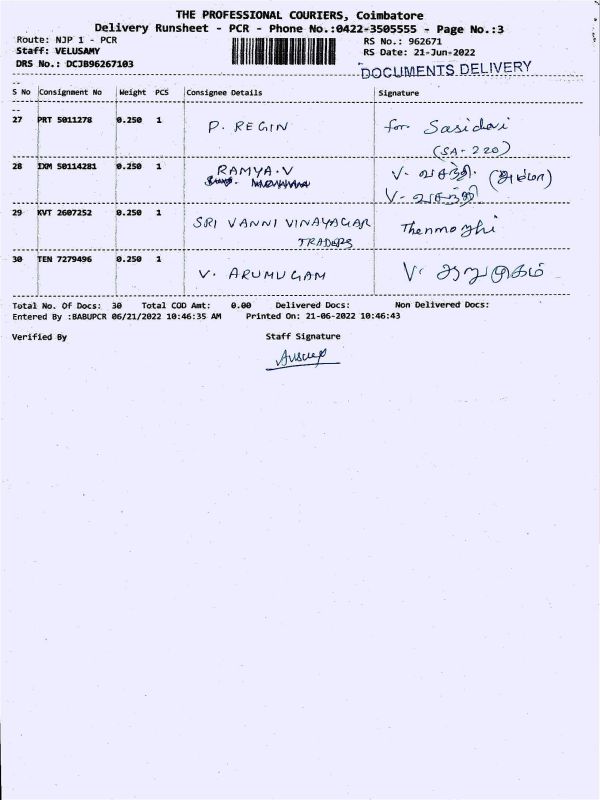 THE PROFESSIONAL COURIERS, Coimbatore
Delivery Runsheet - PCR - Phone No.:0422-3505555 - Page No.:3
Route: NJP 1 - PCR RS No.: 962671
Staff: VELUSAMY RS Date: 21-Jun-2022
DRS No.: DCJB96267103 DOCUMENTS DELIVERY
S No Consignment No Weight PCS Consignee Details Signature
27 PRT 5011278 0.250 1 P. REGIN for Sasidevi
(SA-220)
28 IXM 50114281 0.250 1 RAMYA.V V. வசந்தி. (அம்மா)
V. வசந்தி
29 KVT 2607252 0.250 1 SRI VANNI VINAYAGAR Thenmozhi
TRADERS
30 TEN 7279496 0.250 1 V. ARUMUGAM V. ஆறுமுகம்
Total No. Of Docs: 30 Total COD Amt: 0.00 Delivered Docs: Non Delivered Docs:
Entered By :BABUPCR 06/21/2022 10:46:35 AM Printed On: 21-06-2022 10:46:43
Verified By Staff Signature